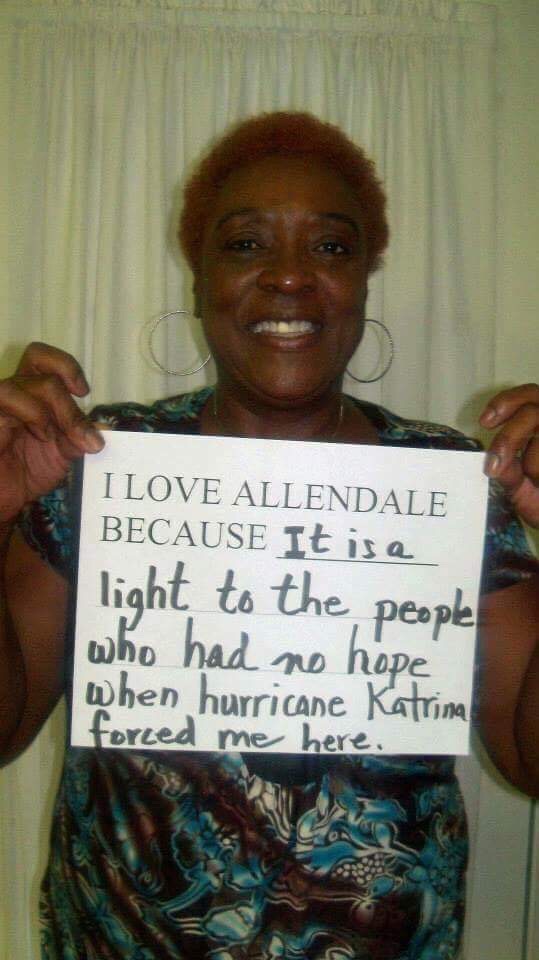 I LOVE ALLENDALE
BECAUSE It is a
light to the people
who had no hope
when hurricane Katrina
forced me here.